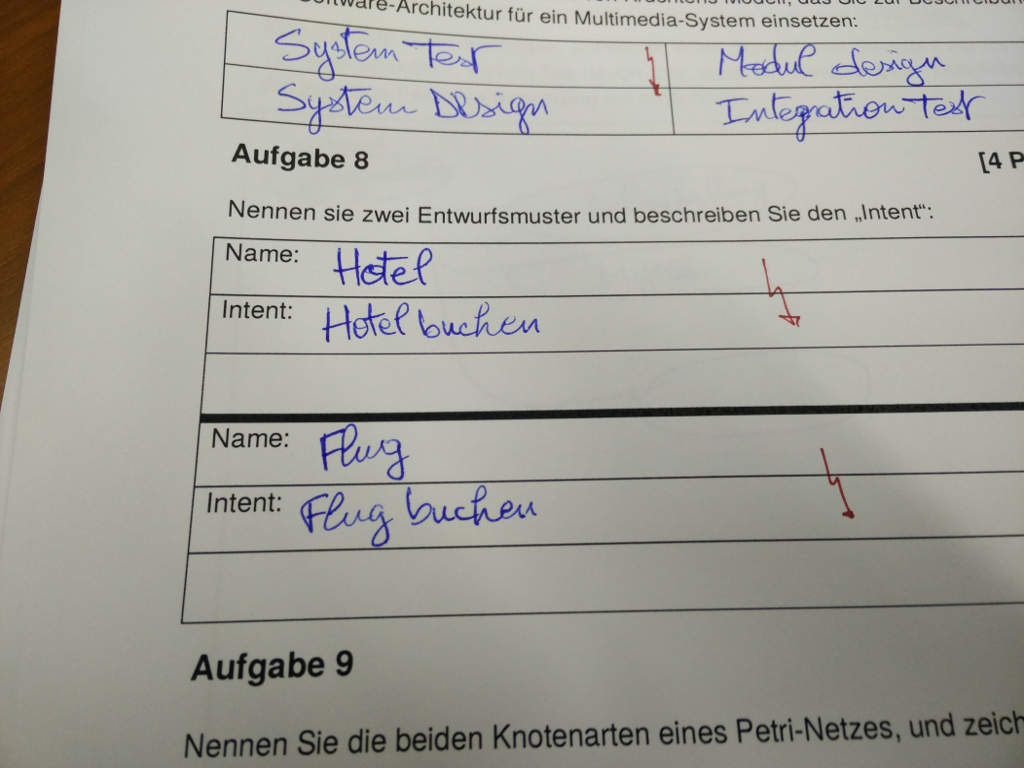 Kruchtens Modell, das Sie zur Beschreibung
Software-Architektur für ein Multimedia-System einsetzen:
System Test Modul design
System Design Integration Test
Aufgabe 8 [4 P
Nennen sie zwei Entwurfsmuster und beschreiben Sie den „Intent“:
Name: Hotel
Intent: Hotel buchen
Name: Flug
Intent: Flug buchen
Aufgabe 9
Nennen Sie die beiden Knotenarten eines Petri-Netzes, und zeich